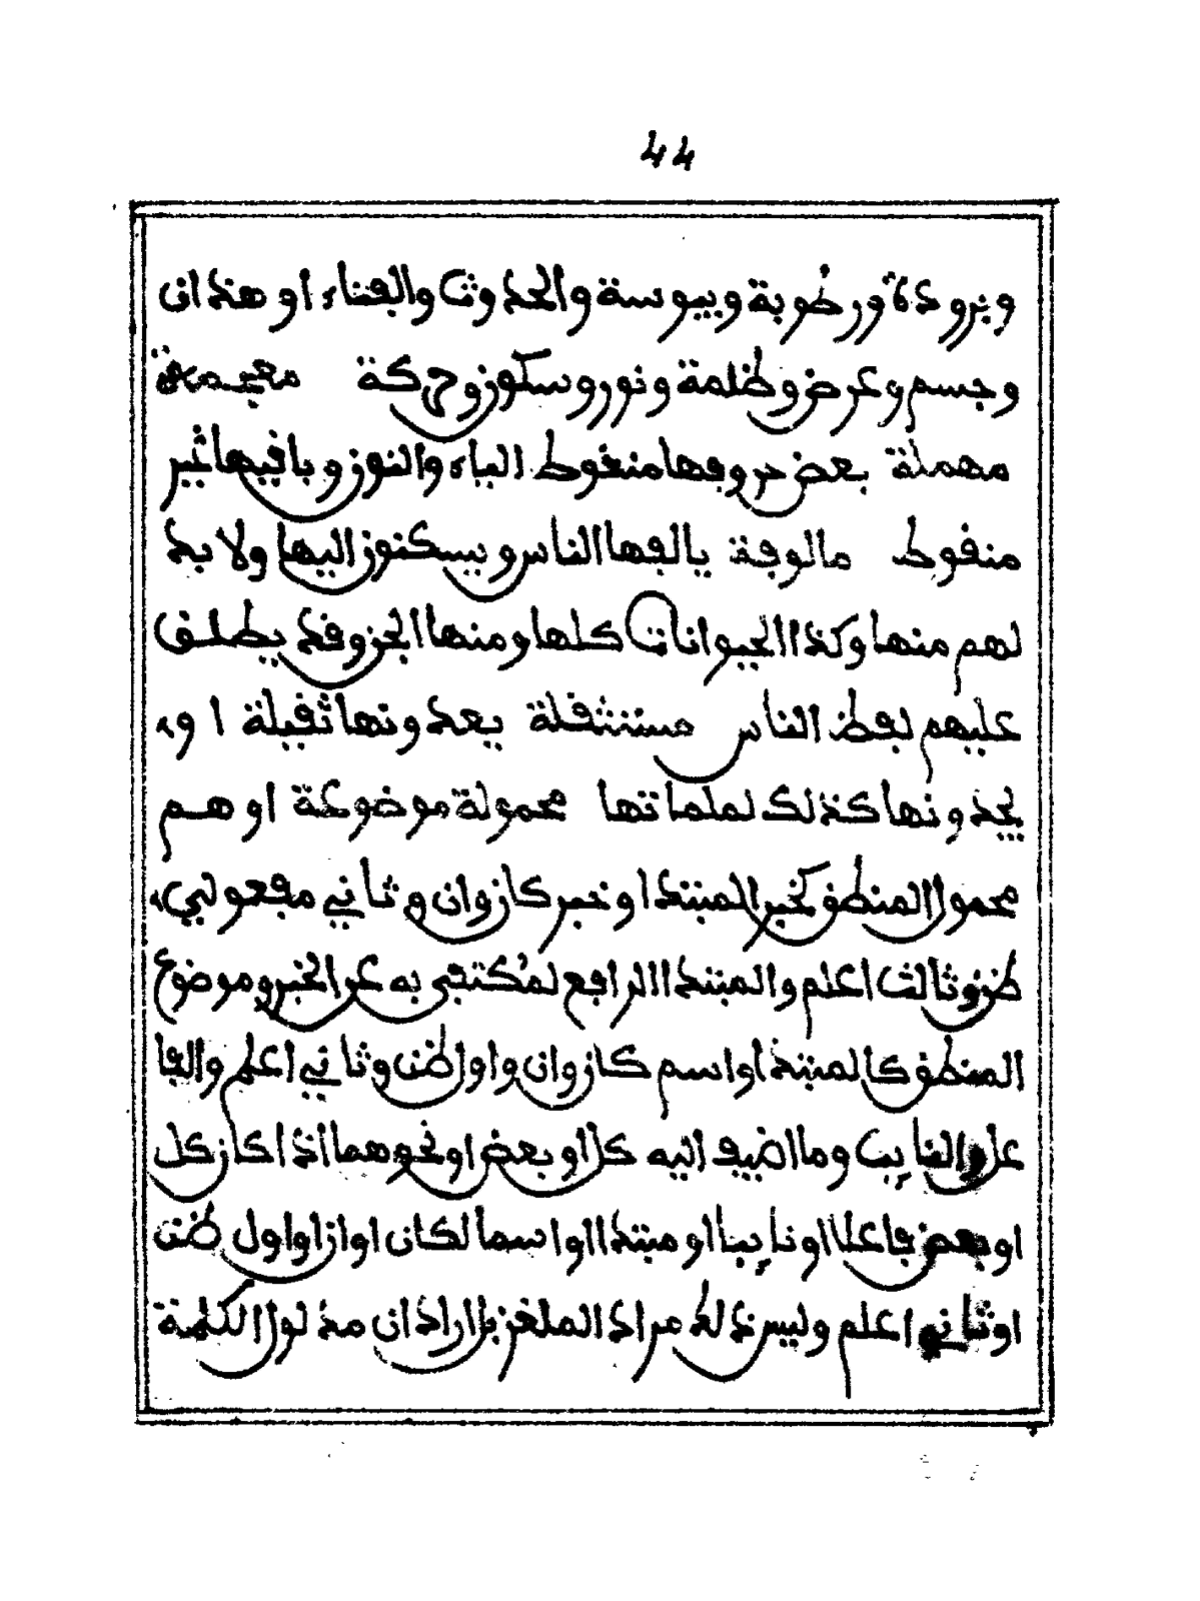 44
وبرودة ورطوبة ويبوسة والحدوث والفناء او هذان
وجسم وعرض وظلمة ونور وسكون وحركة معجمة
مهملة بعض حروفها منقوط الياء والنون وباقيها غير
منقوط مالوفة يالفها الناس ويسكنون اليها ولا بد
لهم منها وكذا الحيوانات كلها ومنها الجن وقد يطلق
عليهم لفظ الناس مستثقلة يعدونها ثقيلة او
يجدونها كذلك لملماتها محمولة موضوعة او هم
محمول المنطق كخبر المبتدا وخبر كان وان وثاني مفعولي
ظن وثالث اعلم والمبتدا الرافع لمكتفى به عن الخبر وموضوع
المنطق كالمبتدا واسم كان وان واول ظن وثاني اعلم والفا
عل والنايب وما اضيف اليه كل او بعض او نحوهما اذا كان كل
او بعض فاعلا او نايبا او مبتدا او اسما لكان او ان او اول ظن
او ثاني اعلم وليس ذلك مراد الملغز بل اراد ان مدلول الكلمة